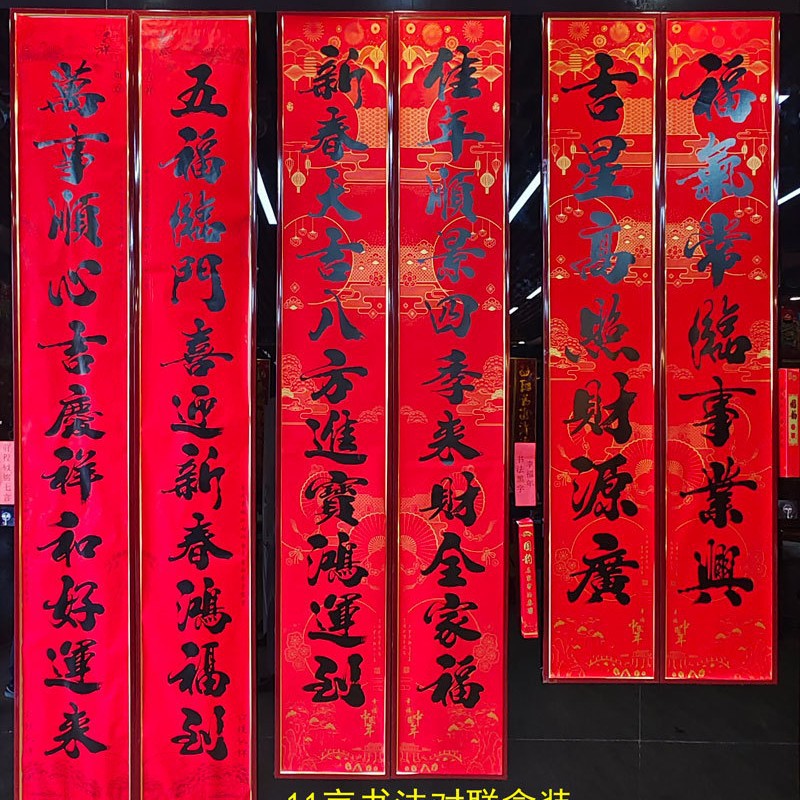 萬事順心吉慶祥和好運来
五福臨門喜迎新春鴻福到
新春天吉八方進寶鴻運到
佳年順景四季来財全家福
吉星高照財源廣
福氣常臨事業興
幸福年
书法黑字
11言书法对联盒装